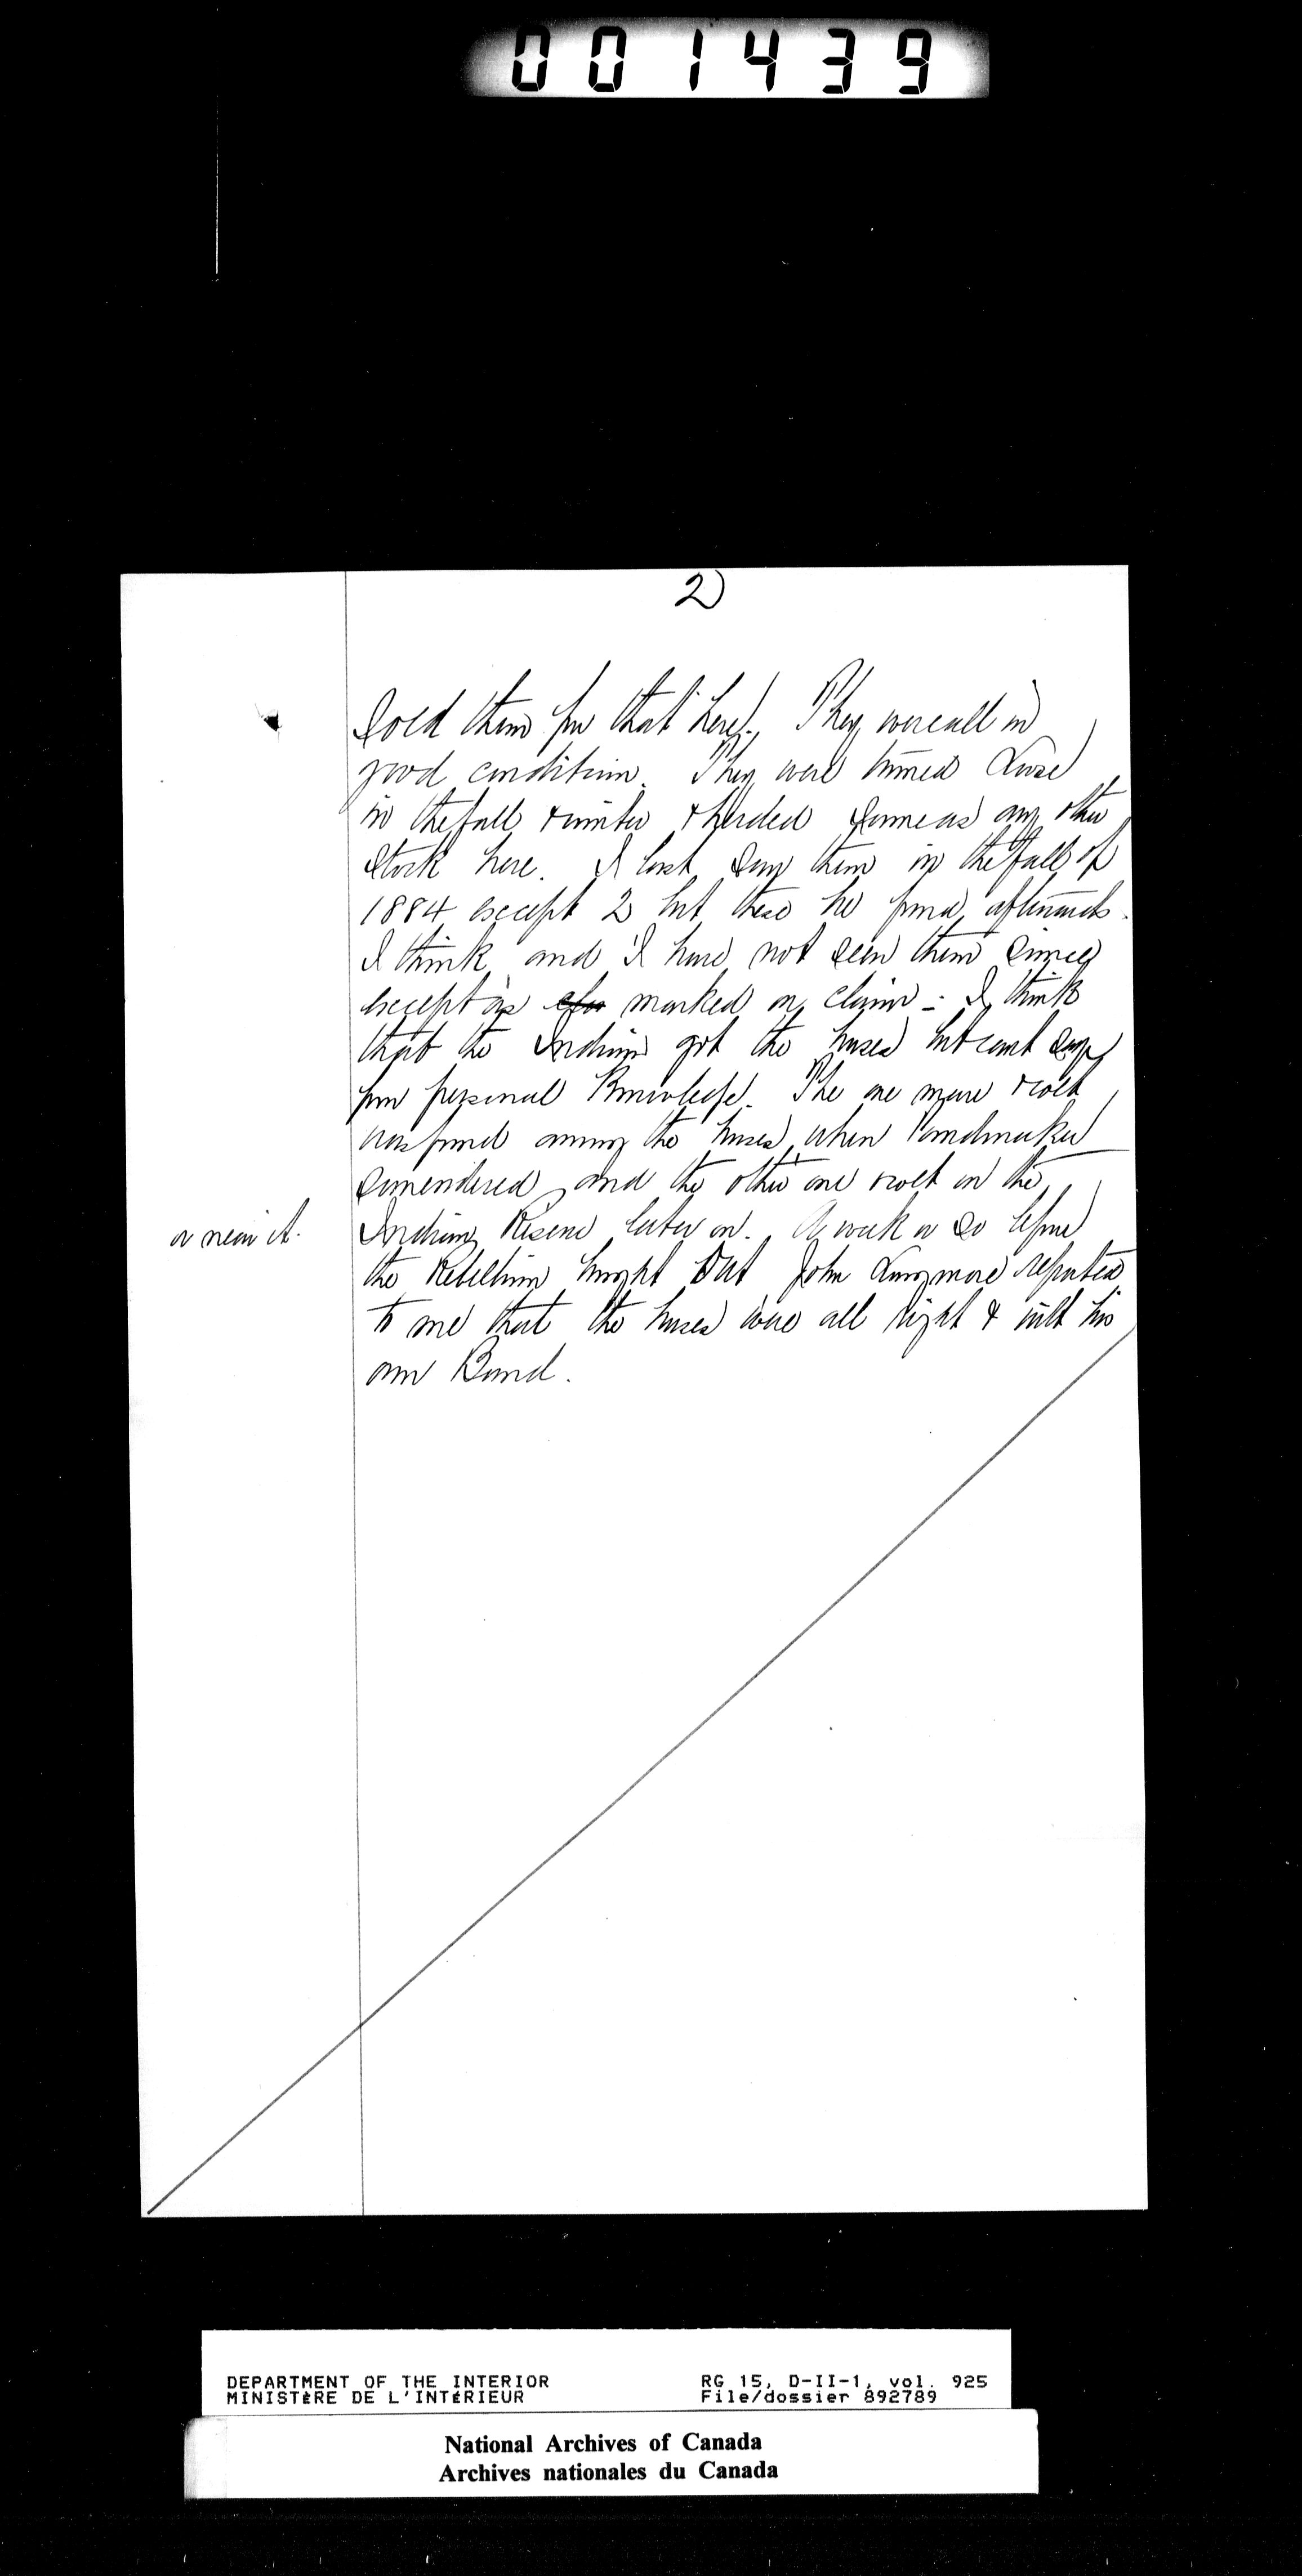 001439
2
Sold them for that here. They were all in
good condition. They were turned loose
in the fall & winter & herded same as any other
stock here. I last saw them in the fall of
1884 except 2 but these he found afterwards
I think and I have not seen them since
except as marked on claim - I think
that the Indians got the horses but cant say
from personal Knowledge. The one mare & colt
was found among the horses when Poundmaker
surrendered and the other one & colt on the
or near it.
Indian Reserve later on. A week or so before
the Rebellion brought out John Longmore reported
to me that the horses were all right & with his
own Band.
DEPARTMENT OF THE INTERIOR
MINISTÈRE DE L'INTÉRIEUR
RG 15, D-II-1, vol. 925
File/dossier 892789
National Archives of Canada
Archives nationales du Canada